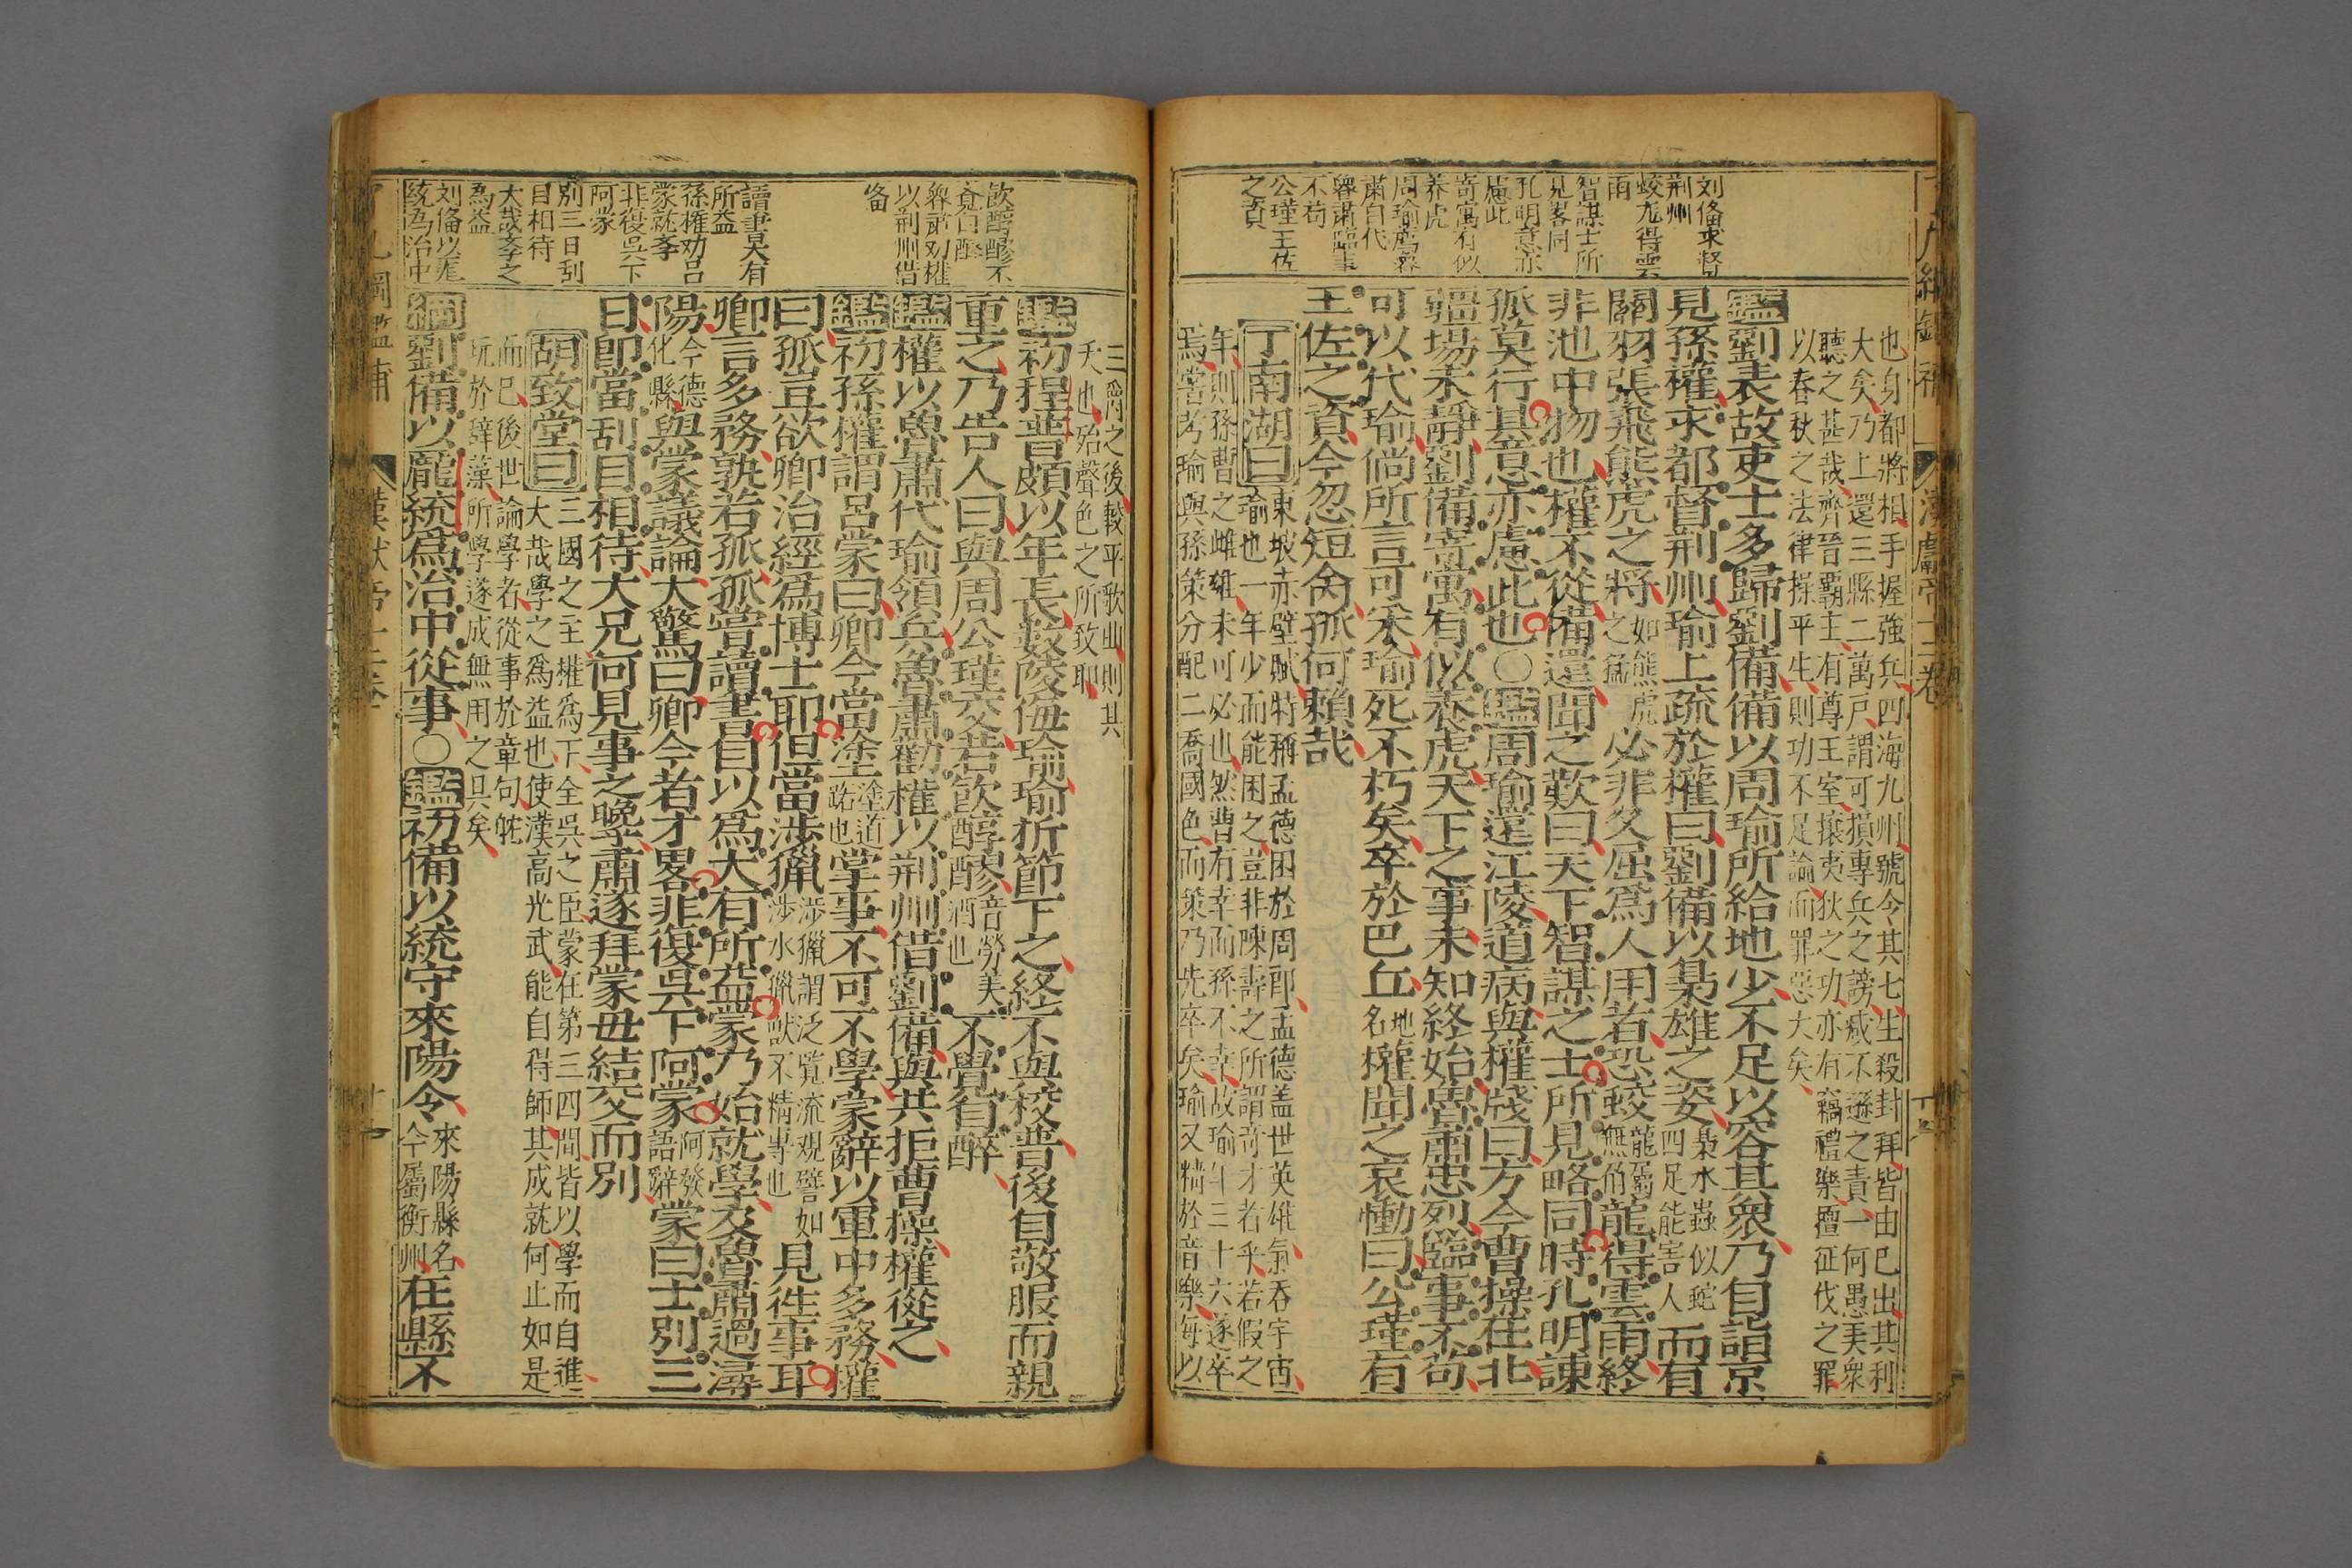 刘俻求督
荆州
蛟龙得雲
雨
智謀士所
見畧同
孔明意亦
慮此
寄寓有似
养虎
周瑜薦魯
肅自代
魯肅臨事
不苟
公瑾王佐
之資
也身都將相手握強兵四海九州號令其七生殺封拜皆由己出其利
大矣乃上還三縣二萬戶謂可損專兵之謗戚不遜之責一何愚美衆
聽之甚哉齊晉覇主有尊王室攘夷狄之功亦有竊禮樂擅征伐之罪
以春秋之法律操平生則功不足論而罪惡大矣
鑑劉表故吏士多歸劉備備以周瑜所給地少不足以容其衆乃自詣京
見孫權求都督荆州瑜上疏於權曰劉備以梟雄之姿梟水蟲似蛇四足能害人而有
關羽張飛熊虎之將如熊虎之猛必非久屈爲人用者恐蛟龍屬無角龍得雲雨終
非池中物也權不從備還聞之歎曰天下智謀之士所見略同時孔明諫
孤莫行其意亦慮此也〇鑑周瑜還江陵道病與權牋曰方今曹操在北
疆場未靜劉備寄寓有似養虎天下之事未知終始魯肅忠烈臨事不苟
可以代瑜倘所言可采瑜死不朽矣卒於巴丘地名權聞之哀慟曰公瑾有
王佐之資今忽短命孤何賴哉
丁南湖曰東坡赤壁賦特稱孟德困於周郎孟德盖世英雄氣吞宇宙
瑜也一年少而能困之豈非陳壽之所謂奇才者乎若假之
年則孫曹之雌雄未可必也然曹有幸而孫不幸故瑜年三十六遂卒
焉嘗考瑜與孫策分配二喬國色而策乃先卒矣瑜又精於音樂每以
飲醇醪不
覚自醉
魯肅劝權
以荆州借
俻
讀書大有
所益
孫權劝吕
蒙就学
非復吳下
阿蒙
别三日刮
目相待
大哉学之
爲益
刘俻以龐
統为治中
三爵之後較平歌曲則其
夭也殆聲色之所致耶
鑑初程普頗以年長數陵侮瑜瑜折節下之終不與校普後自敬服而親
重之乃告人曰與周公瑾交若飲醇醪音勞美酒也不覺自醉
鑑權以魯肅代瑜領兵魯肅勸權以荆州借劉備與共拒曹操權從之
鑑初孫權謂呂蒙曰卿今當塗塗道路也掌事不可不學蒙辭以軍中多務權
曰孤豈欲卿治經爲博士耶但當涉獵涉獵謂泛覧流觀譬如涉水獵獸不精專也見徃事耳
卿言多務孰若孤孤嘗讀書自以爲大有所益蒙乃始就學及魯肅過潯
陽今德化縣與蒙議論大驚曰卿今者才畧非復吳下阿蒙阿發語辭蒙曰士別三
日卽當刮目相待大兄何見事之晚乎肅遂拜蒙毋結交而別
胡致堂曰三國之主權爲下全吳之臣蒙在第三四間皆以學而自進
大哉學之爲益也使漢高光武能自得師其成就何止如是
而已後世論學者從事於章句
玩於辭藻所學遂成無用之具矣
綱劉備以龐統爲治中從事〇鑑初備以統守來陽令來陽縣名今屬衡州在縣不